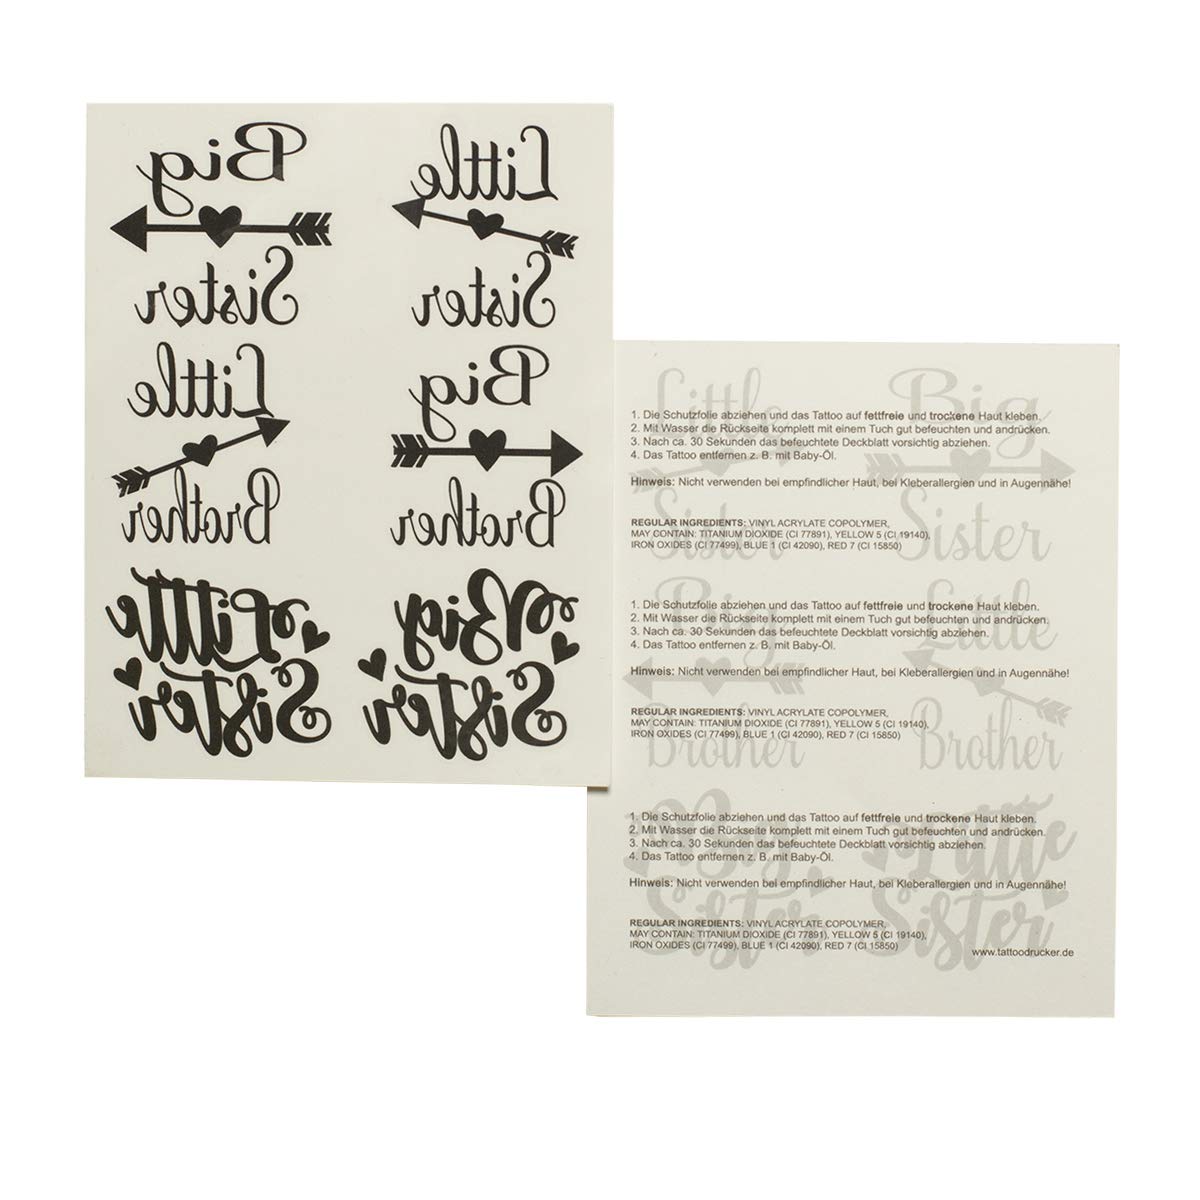 Big
Sister
Little
Sister
Little
Brother
Big
Brother
Little
Sister
Big
Sister
Little
Sister
Big
Sister
1. Die Schutzfolie abziehen und das Tattoo auf fettfreie und trockene Haut kleben.
2. Mit Wasser die Rückseite komplett mit einem Tuch gut befeuchten und andrücken.
3. Nach ca. 30 Sekunden das befeuchtete Deckblatt vorsichtig abziehen.
4. Das Tattoo entfernen z. B. mit Baby-Öl.
Hinweis: Nicht verwenden bei empfindlicher Haut, bei Kleberallergien und in Augennähe!
REGULAR INGREDIENTS: VINYL ACRYLATE COPOLYMER,
MAY CONTAIN: TITANIUM DIOXIDE (CI 77891), YELLOW 5 (CI 19140),
IRON OXIDES (CI 77499), BLUE 1 (CI 42090), RED 7 (CI 15850)
Big
Brother
Little
Brother
1. Die Schutzfolie abziehen und das Tattoo auf fettfreie und trockene Haut kleben.
2. Mit Wasser die Rückseite komplett mit einem Tuch gut befeuchten und andrücken.
3. Nach ca. 30 Sekunden das befeuchtete Deckblatt vorsichtig abziehen.
4. Das Tattoo entfernen z. B. mit Baby-Öl.
Hinweis: Nicht verwenden bei empfindlicher Haut, bei Kleberallergien und in Augennähe!
REGULAR INGREDIENTS: VINYL ACRYLATE COPOLYMER,
MAY CONTAIN: TITANIUM DIOXIDE (CI 77891), YELLOW 5 (CI 19140),
IRON OXIDES (CI 77499), BLUE 1 (CI 42090), RED 7 (CI 15850)
Big
Sister
Little
Sister
1. Die Schutzfolie abziehen und das Tattoo auf fettfreie und trockene Haut kleben.
2. Mit Wasser die Rückseite komplett mit einem Tuch gut befeuchten und andrücken.
3. Nach ca. 30 Sekunden das befeuchtete Deckblatt vorsichtig abziehen.
4. Das Tattoo entfernen z. B. mit Baby-Öl.
Hinweis: Nicht verwenden bei empfindlicher Haut, bei Kleberallergien und in Augennähe!
REGULAR INGREDIENTS: VINYL ACRYLATE COPOLYMER,
MAY CONTAIN: TITANIUM DIOXIDE (CI 77891), YELLOW 5 (CI 19140),
IRON OXIDES (CI 77499), BLUE 1 (CI 42090), RED 7 (CI 15850)
www.tattoodrucker.de